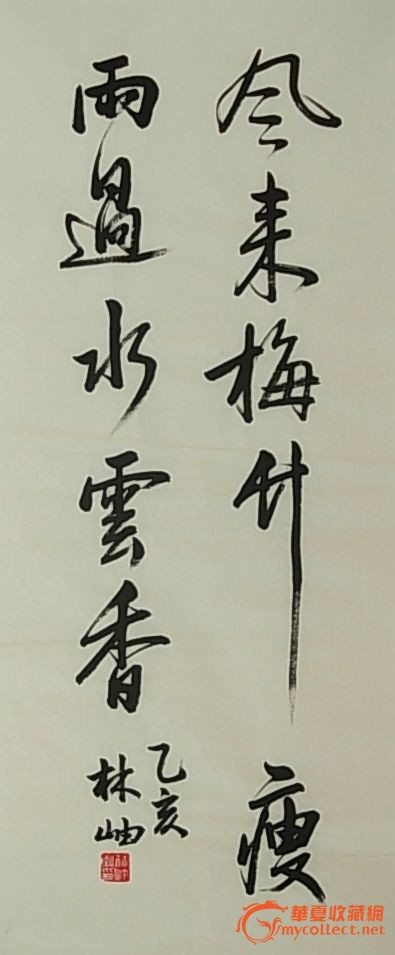 风来梅竹瘦
雨過水雲香
乙亥
林岫
華夏收藏網
mycollect.net